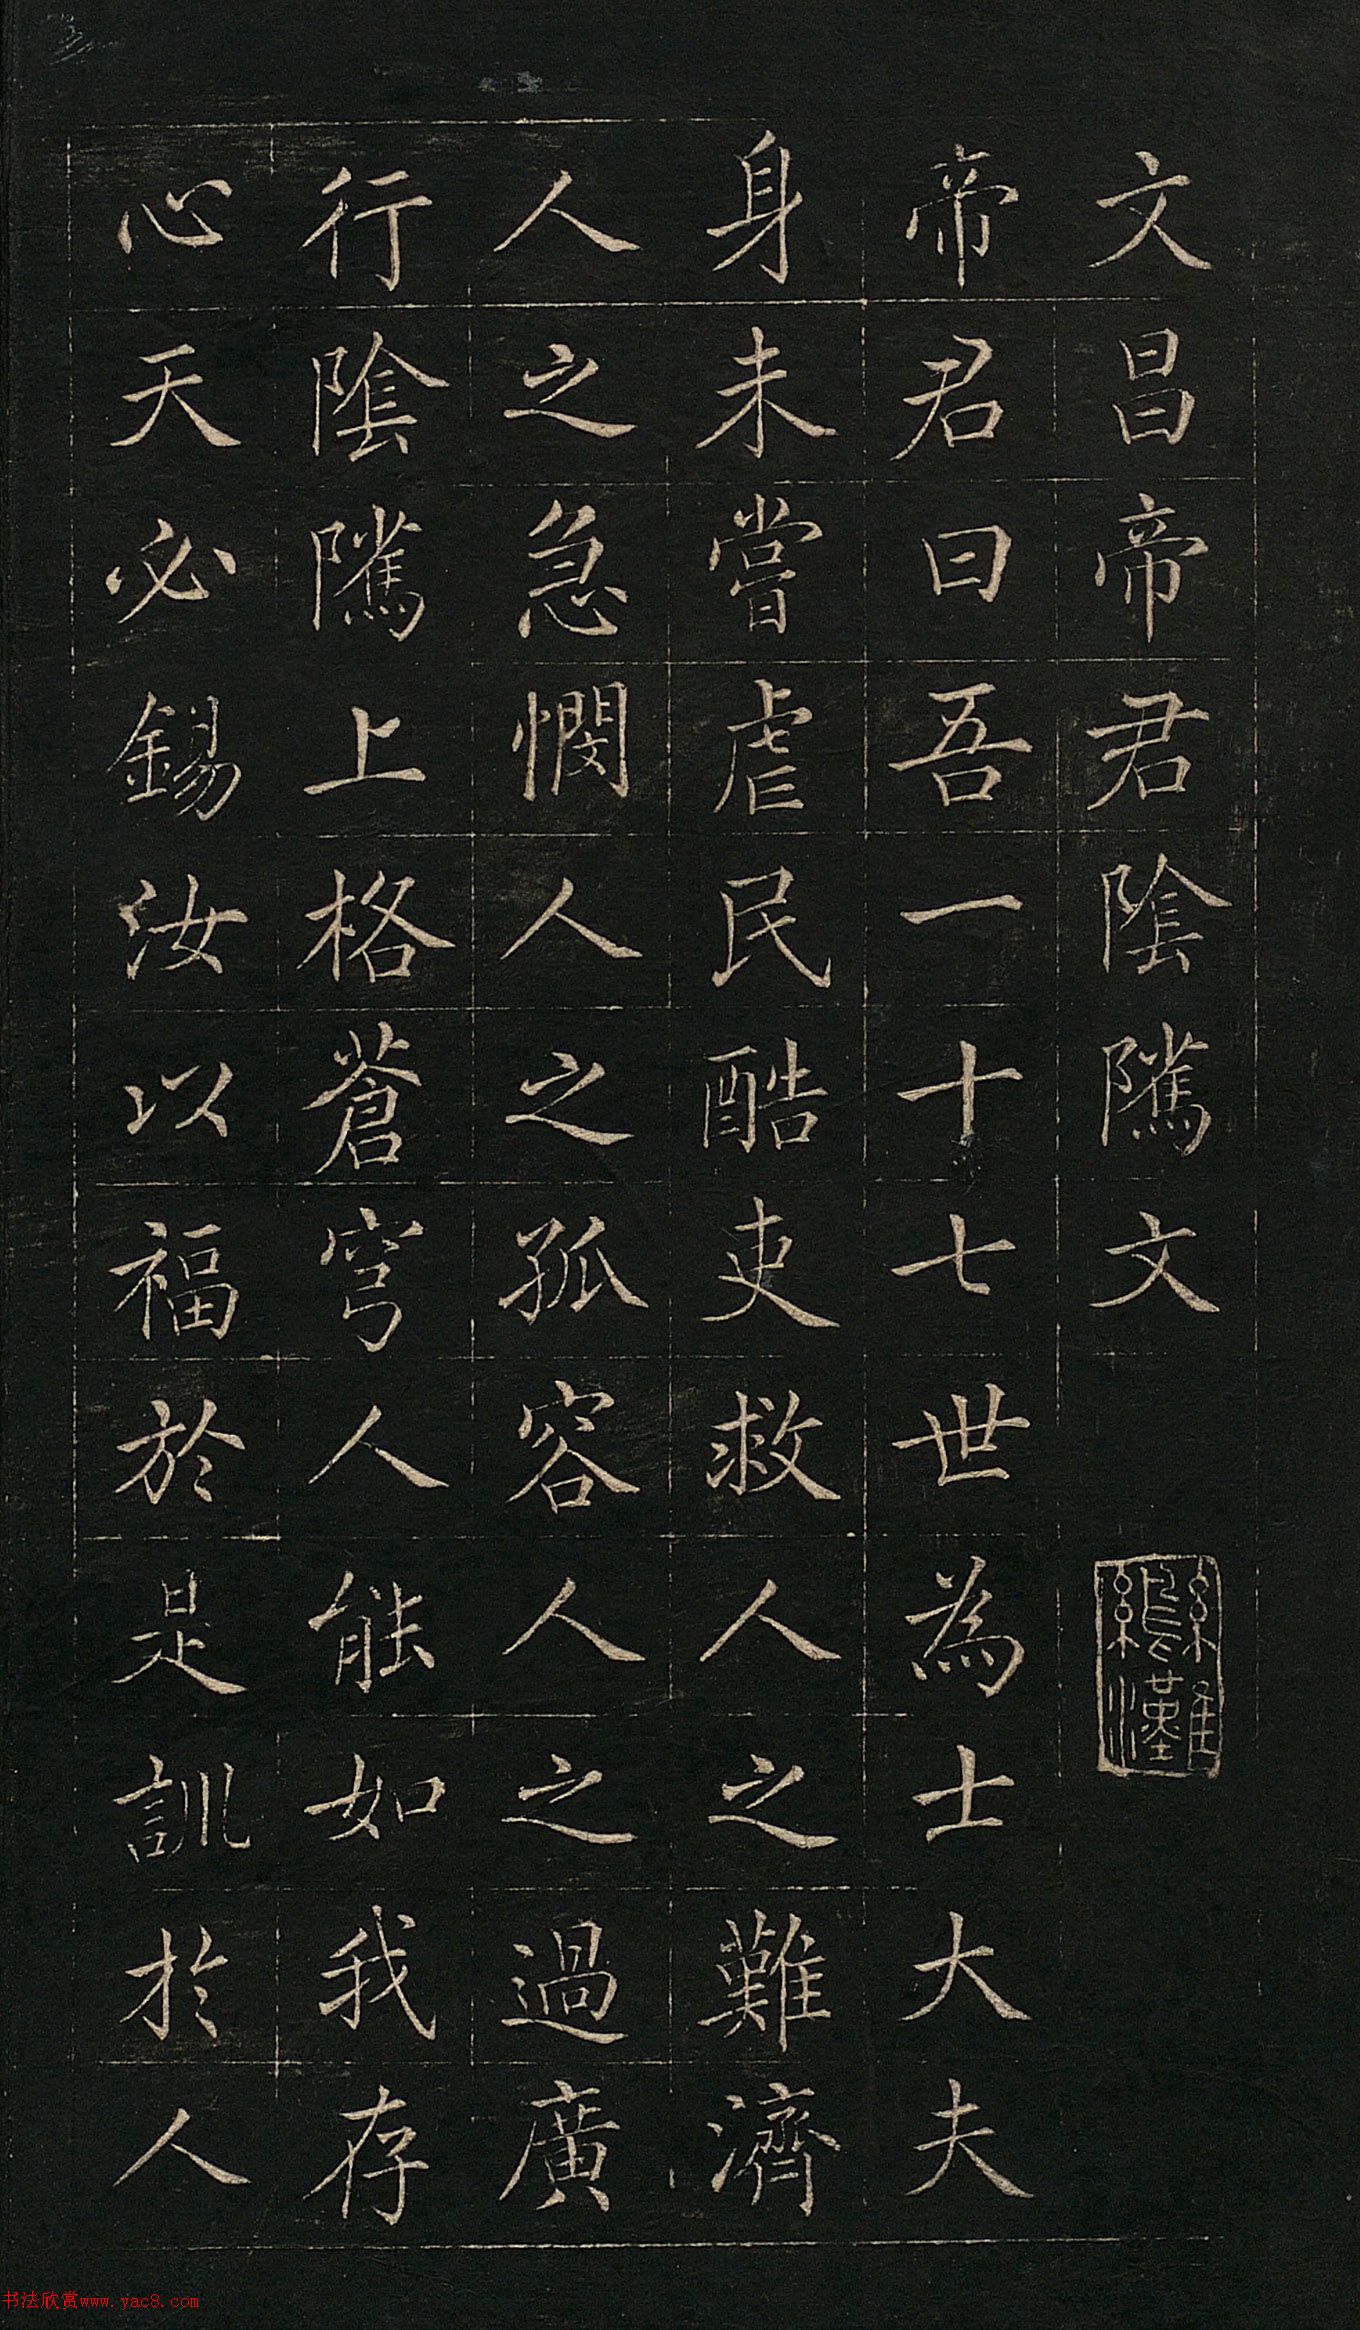 文昌帝君陰騭文
帝君曰吾一十七世為士大夫
身未嘗虐民酷吏救人之難濟
人之急憫人之孤容人之過廣
行陰騭上格蒼穹人能如我存
心天必錫汝以福於是訓於人
书法欣赏www.yac8.com